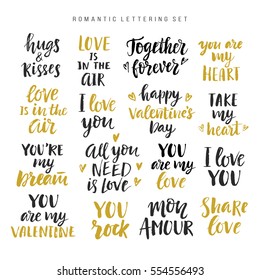 ROMANTIC LETTERING SET
hugs
&
kisses
LOVE
IS IN
THE
AIR
Together
forever
you are
my
HEART
love
IS IN the
air
I love
you
happy
Valentine's
Day
TAKE
my
heart
YOU'RE
my
Dream
All you
NEED
is love
YOU
ARE my
love
I LOVE
YOU
YOU
are my
VALENTINE
YOU
rock
MON
AMOUR
Share
Love
shutterstock
IMAGE ID: 554556493
www.shutterstock.com